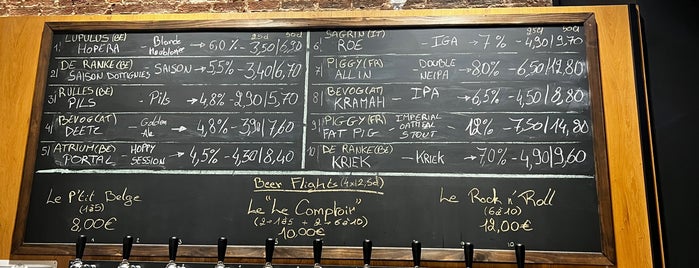 25cl 50cl
1) LUPULUS(BE) HOPERA - Blonde Houblonnée → 6,0% - 3,50/6,90
2) DE RANKE(BE) SAISON DOTTIGNIES - SAISON → 5,5% - 3,40/6,70
3) RULLES(BE) PILS - Pils → 4,8% - 2,90/5,70
4) BEVOG(AT) DEETC - Golden Ale → 4,8% - 3,90/7,60
5) ATRIUM(BE) PORTAL - HOPPY SESSION → 4,5% - 4,30/8,40
25cl 50cl
6) SAGRIN(IT) ROE - IGA → 7% - 4,90/9,70
7) PIGGY(FR) ALL IN - DOUBLE NEIPA → 8,0% - 6,50/12,80
8) BEVOG(AT) KRAMAH - IPA → 6,5% - 4,50/8,80
9) PIGGY(FR) FAT PIG - IMPERIAL OATMEAL STOUT → 12% - 7,50/14,80
10) DE RANKE(BE) KRIEK - KRIEK → 7,0% - 4,90/9,60
Beer Flights (4x12,5cl)
Le P'tit Belge
(1à5)
8,00€
Le "Le Comptoir"
(2→1à5 + 2→6à10)
10,00€
Le Rock n' Roll
(6à10)
12,00€
1 2 3 4 5 6 7 8 9 10